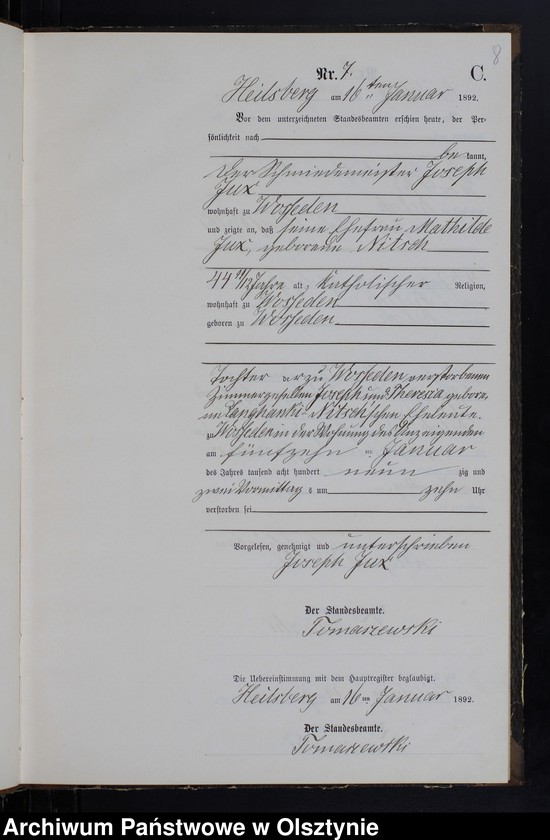 8
Nr. 7. C.
Heilsberg am 16ten Januar 1892.
Vor dem unterzeichneten Standesbeamten erschien heute, der Per-
sönlichkeit nach
be kannt,
der Schmiedemeister Joseph
Jux
wohnhaft zu Wosseden
und zeigte an, daß seine Ehefrau Mathilde
Jux, geborene Nitsch
44 11/12 Jahre alt, katholischer Religion,
wohnhaft zu Wosseden
geboren zu Wosseden
Tochter der zu Wosseden verstorbenen
Zimmergesellen Joseph und Theresia, gebore-
ne Langhanki- Nitsch'schen Eheleute.
zu Wosseden in der Wohnung des Anzeigenden
am fünfzehn ten Januar
des Jahres tausend acht hundert neun zig und
zwei Vormittag s um zehn Uhr
verstorben sei
Vorgelesen, genehmigt und unterschrieben
Joseph Jux
Der Standesbeamte.
Tomaszewski
Die Uebereinstimmung mit dem Hauptregister beglaubigt.
Heilsberg am 16ten Januar 1892.
Der Standesbeamte.
Tomaszewski
Archiwum Państwowe w Olsztynie